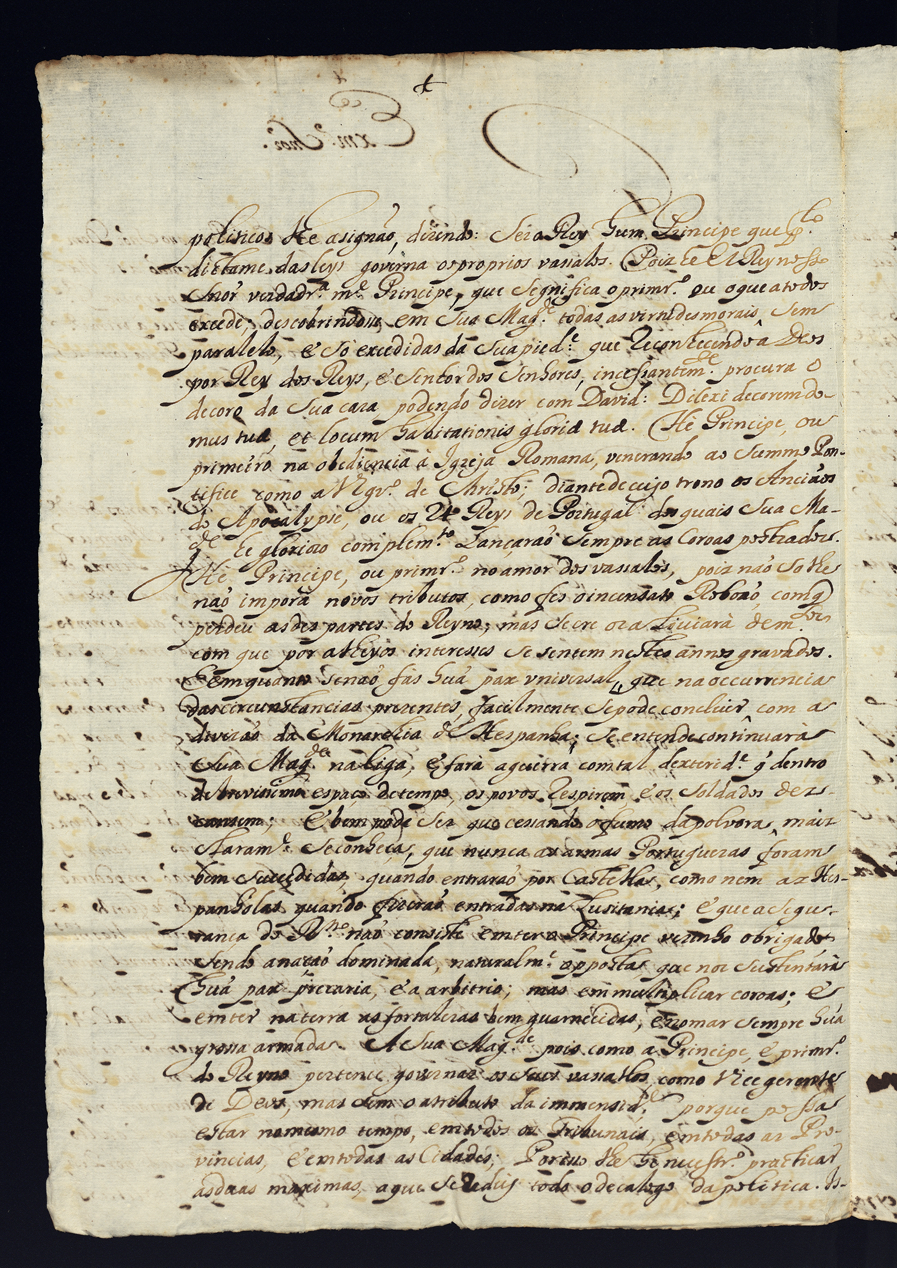 politicos lhe asignaõ, dizendo: Ser o Rey hum Principe que p.lo
dictame das leys governa os proprios vasalos. Poiz he El Rey nosso
Snõr verdadr.a m.te Principe, que segnifica o primr.o ou o que a todos
excede; descobrindose em Sua Mag.de todas as virtudes morais, sem
paralelo, e só excedidas da sua pied.e que reconhecendo â Deos
por Rey dos Reys, e Senhor dos Senhores, incessantem.te procura o
decoro da sua caza podendo dizer com David: Dilexi decorem do-
mus tuæ, et locum habitationis gloriæ tuæ. He Principe, ou
primeiro na obediencia â Igreja Romana, venerando ao Summo Pon-
tifice como a Vigr.o de Christo; diante de cujo trono os Anciaõs
do Apocalypse, ou os 24 Reys de Portugal dos quais Sua Ma-
g.de he gloriozo complem.to lançaraõ sempre as Coroas postrados.
He Principe, ou primr.o no amor dos vassalos, poiz naõ só lhe
naõ imporá novos tributos, como fes o incensato Roboaõ, com q
perdeu as des partes do Reyno; mas se cre os aliviará de m.tos
com que por alheyos interesses se sentem nestes annos gravados.
E em quanto senaõ fas huã pax vniversal, que na occurrencia
das circunstancias prezentes, facilmente se pode concluir com a
divizaõ da Monarchia de Hespanha; se entende continuará
Sua Mag.de na liga, e fará a guerra com tal dexterid.e q dentro
de brevissimo espaço de tempo, os povos respirem e os Soldados dez-
cansem; e bem pode ser que cessando o fumo da polvora, mais
claram.te se conheça, que nunca as armas Portuguezas foram
bem sucedidas, quando entraraõ por Castella, como nem as Hes-
panholas quando fizeraõ entradas na Lusitania; e que a segu-
rança do R.no naõ consiste em ter o Principe vezinho obrigado
sendo a naçaõ dominada, naturalm.te opposta, que nos sustentará
huã pax precaria, e a arbitrio; mas em multiplicar coroas; e
em ter na terra as fortalezas bem guarnecidas, e no mar sempre huã
groça armada. A Sua Mag.de pois como a Principe, e primr.o
do Reyno pertence governar os seus vassallos, como Vicegerente
de Deos, mas sem o atributo da immensid.e, porque possa
estar no mesmo tempo, em todos os Tribunais, em todas as Pro-
vincias, e em todas as Cidades; Por isso lhe he necessr.o practicar
as duas maximas, a que se redus todo o decalogo da politica. Is-